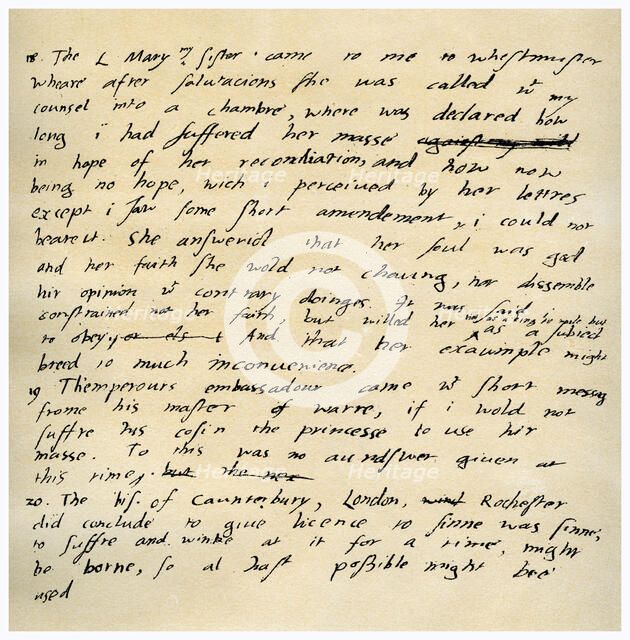 18. The L Mary my sister came to me to Whestmuster
wheare after salutacions she was called wt my
counsel into a chambre, where was declared how
long i had suffered her masse againest my will
in hope of her reconciliation, and how now
being no hope, wich i perceived by her lettres
except i saw some short amendement, i could not
beare it. She answerid that her soul was god
and her faith she wold not chaung, nor dissemble
hir opinion wt contrary doinges. It was said i
constrained not her faith, but willed her not as a king to rule but
to obey, or els t And that her exaumple might as a subject
breed to much inconvenience.
19 Themperours embassadour came wt short messag
frome his master of warre, if i wold not
suffre his cosin the princesse to use hir
masse. To this was no aundswer given at
this time, but the nex
20. The bis. of Caunterbury, London, Rochester
did conclude to give licence to sinne was sinne,
to suffre and winke at it for a time, might
be borne, so al hast possible might bee
used
Heritage
Heritage
Heritage
Heritage
Heritage
Heritage
©